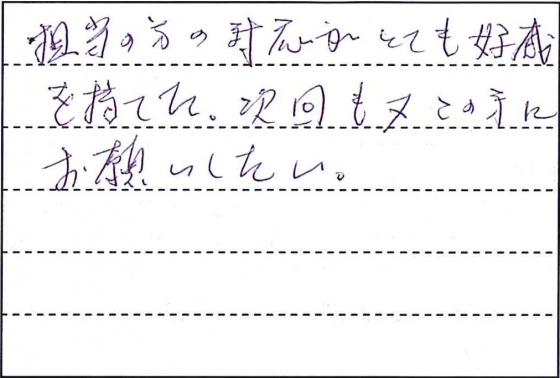 担当の方の対応がとても好感
を持てた。次回も又この方に
お願いしたい。